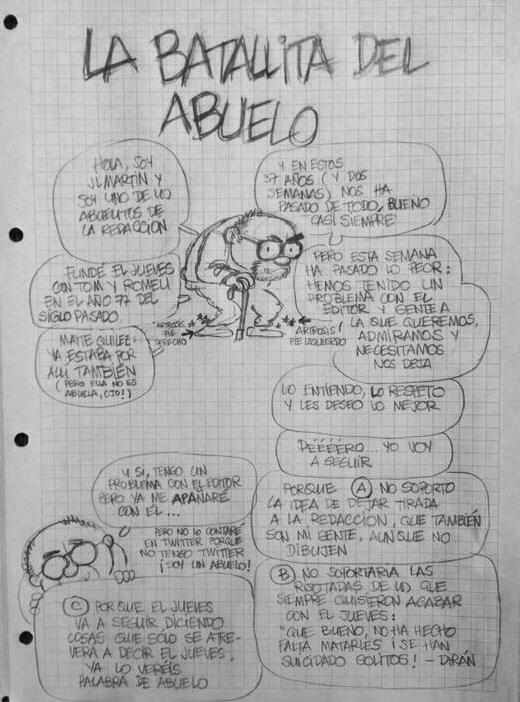 LA BATALLITA DEL
ABUELO
HOLA, SOY
JL MARTIN Y
SOY UNO DE LOS
ABUELITOS DE
LA REDACCIÓN
FUNDÉ EL JUEVES
CON TOM Y ROMEU
EN EL AÑO 77 DEL
SIGLO PASADO
MAITE QUILEZ
YA ESTABA POR
ALLI TAMBIÉN
(PERO ELLA NO ES
ABUELA, OJO!)
ARTROSIS
PIE
DERECHO
ARTROSIS
PIE IZQUIERDO
Y EN ESTOS
37 AÑOS (Y DOS
SEMANAS) NOS HA
PASADO DE TODO, BUENO
CASI SIEMPRE
PERO ESTA SEMANA
HA PASADO LO PEOR:
HEMOS TENIDO UN
PROBLEMA CON EL
EDITOR Y GENTE A
LA QUE QUEREMOS,
ADMIRAMOS Y
NECESITAMOS
NOS DEJA
LO ENTIENDO, LO RESPETO
Y LES DESEO LO MEJOR
PEEEEERO... YO VOY
A SEGUIR
PORQUE A NO SOPORTO
LA IDEA DE DEJAR TIRADA
A LA REDACCIÓN, QUE TAMBIÉN
SON MI GENTE, AUNQUE NO
DIBUJEN
B NO SOPORTARIA LAS
RISOTADAS DE LOS QUE
SIEMPRE QUISIERON ACABAR
CON EL JUEVES:
"QUE BUENO, NO HA HECHO
FALTA MATARLES ¡SE HAN
SUICIDADO SOLITOS! - DIRÁN
Y SI, TENGO UN
PROBLEMA CON EL EDITOR
PERO YA ME APAÑARÉ
CON EL...
PERO NO LO CONTARÉ
EN TWITTER PORQUE
NO TENGO TWITTER
¡SOY UN ABUELO!
C PORQUE EL JUEVES
VA A SEGUIR DICIENDO
COSAS QUE SÓLO SE ATRE-
VERA A DECIR EL JUEVES,
YA LO VERÉIS
PALABRA DE ABUELO